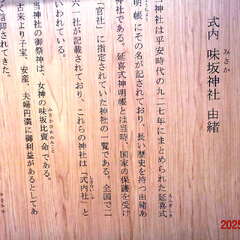 式内 味坂神社 由緒
みさか
神社は平安時代の九二七年にまとめられた延喜式
えんぎしき
神名帳にその名が記されており、長い歴史を持つ由緒あ
神社である。延喜式神明帳とは当時、国家の保護を受け
「官社」に指定されていた神社の一覧である。全国で二
六一社が記されており、これらの神社は「式内社」と
いわれている。
当神社の御祭神は、女神の味坂比賣命である。
古来より子宝、安産、夫婦円満に御利益があるとしてあ
信仰されてきた。
2025